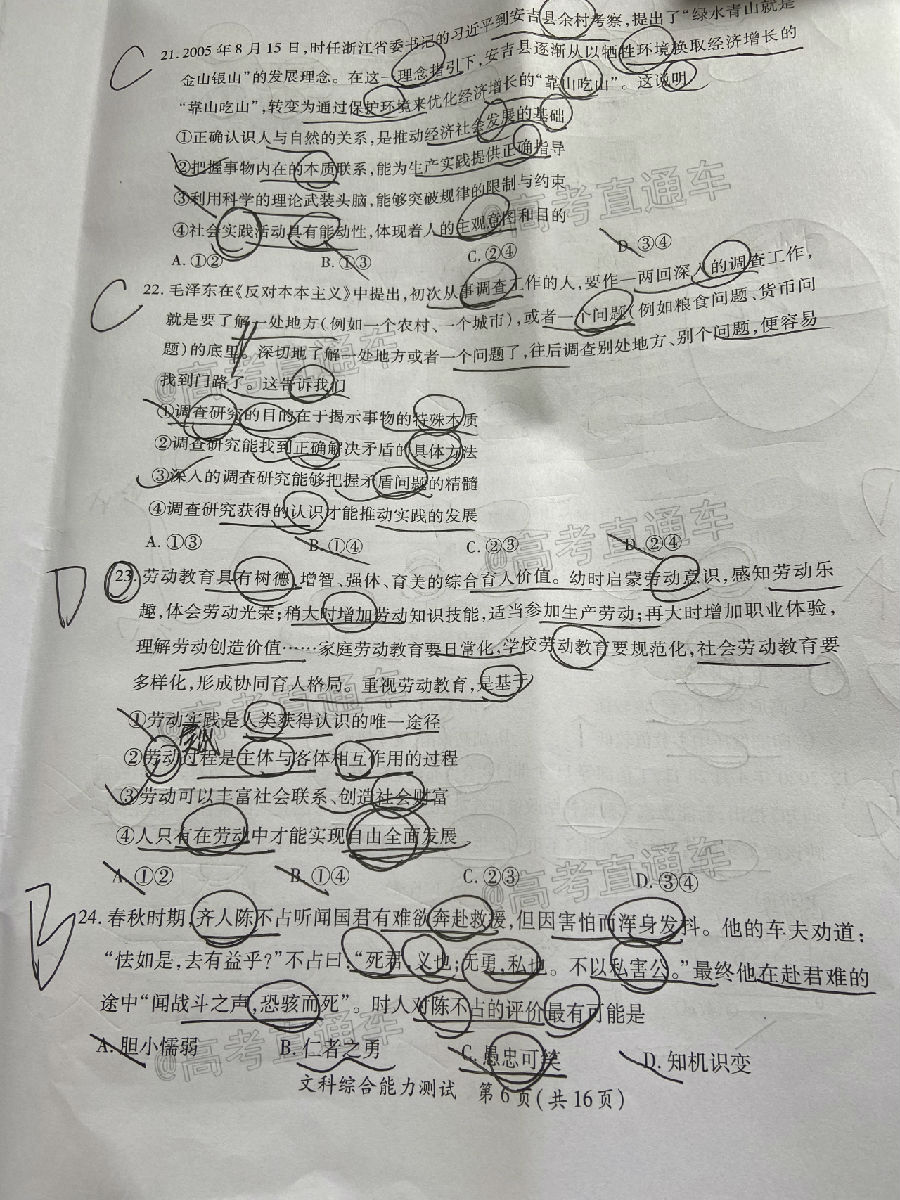 C
21. 2005年8月15日,时任浙江省委书记的习近平到安吉县余村考察,提出了“绿水青山就是
金山银山”的发展理念。在这一理念指引下,安吉县逐渐从以牺牲环境换取经济增长的
“靠山吃山”,转变为通过保护环境来优化经济增长的“靠山吃山”。这说明
①正确认识人与自然的关系,是推动经济社会发展的基础
②把握事物内在的本质联系,能为生产实践提供正确指导
③利用科学的理论武装头脑,能够突破规律的限制与约束
④社会实践活动具有能动性,体现着人的主观意图和目的
A. ①② B. ①③ C. ②④ D. ③④
C
22. 毛泽东在《反对本本主义》中提出,初次从事调查工作的人,要作一两回深入的调查工作,
就是要了解一处地方(例如一个农村、一个城市),或者一个问题(例如粮食问题、货币问
题)的底里。深切地了解一处地方或者一个问题了,往后调查别处地方、别个问题,便容易
找到门路了。这告诉我们
①调查研究的目的在于揭示事物的特殊本质
②调查研究能找到正确解决矛盾的具体方法
③深入的调查研究能够把握矛盾问题的精髓
④调查研究获得的认识才能推动实践的发展
A. ①③ B. ①④ C. ②③ D. ②④
D
23. 劳动教育具有树德、增智、强体、育美的综合育人价值。幼时启蒙劳动意识,感知劳动乐
趣,体会劳动光荣;稍大时增加劳动知识技能,适当参加生产劳动;再大时增加职业体验,
理解劳动创造价值……家庭劳动教育要日常化,学校劳动教育要规范化,社会劳动教育要
多样化,形成协同育人格局。重视劳动教育,是基于
①劳动实践是人类获得认识的唯一途径
②劳动过程是主体与客体相互作用的过程
③劳动可以丰富社会联系、创造社会财富
④人只有在劳动中才能实现自由全面发展
A. ①② B. ①④ C. ②③ D. ③④
B
24. 春秋时期,齐人陈不占听闻国君有难欲奔赴救援,但因害怕而浑身发抖。他的车夫劝道:
“怯如是,去有益乎?”不占曰:“死君,义也;无勇,私也。不以私害公。”最终他在赴君难的
途中“闻战斗之声,恐骇而死”。时人对陈不占的评价最有可能是
A. 胆小懦弱 B. 仁者之勇 C. 愚忠可笑 D. 知机识变
文科综合能力测试 第6页(共16页)
@高考直通车
@高考直通车
@高考直通车
@高考直通车
@高考直通车
@高考直通车